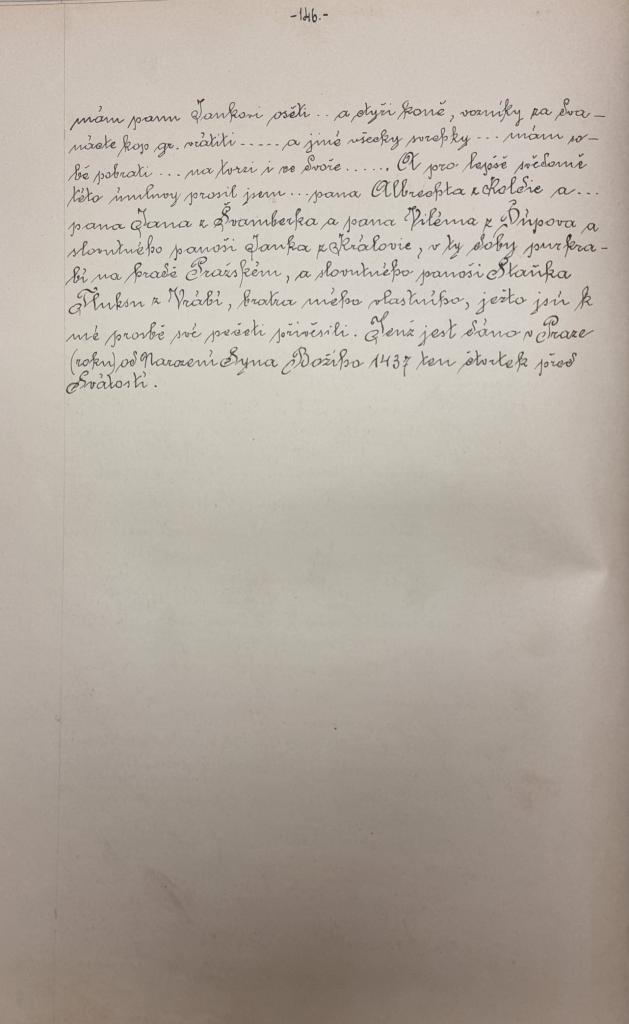 -146.-
mám panu Jankovi oséti .. a čtyři koně, vozníky za dva-
nádcte kop gr. vrátiti ..... a jiné všecky svrchky ... mám so-
bě pobrati ... na tvrzi i ve dvoře ...... A pro lepšé svědomé
této úmluvy prosil jsem ... pana Albrechta z Koldic a ...
pana Jana z Švamberka a pana Viléma z Šúpova a
slovutného panoši Janka z Královic, v ty doby purkra-
bí na hradě Pražském, a slovutného panoši Staňka
Fluksu z Vrábí, bratra mého vlastního, ježto jsú k
mé prosbě své pečeti přivěsili. Jenž jest dáno v Praze
(roku) od Narození Syna Božího 1437 ten čtvrtek před
Svátostí.